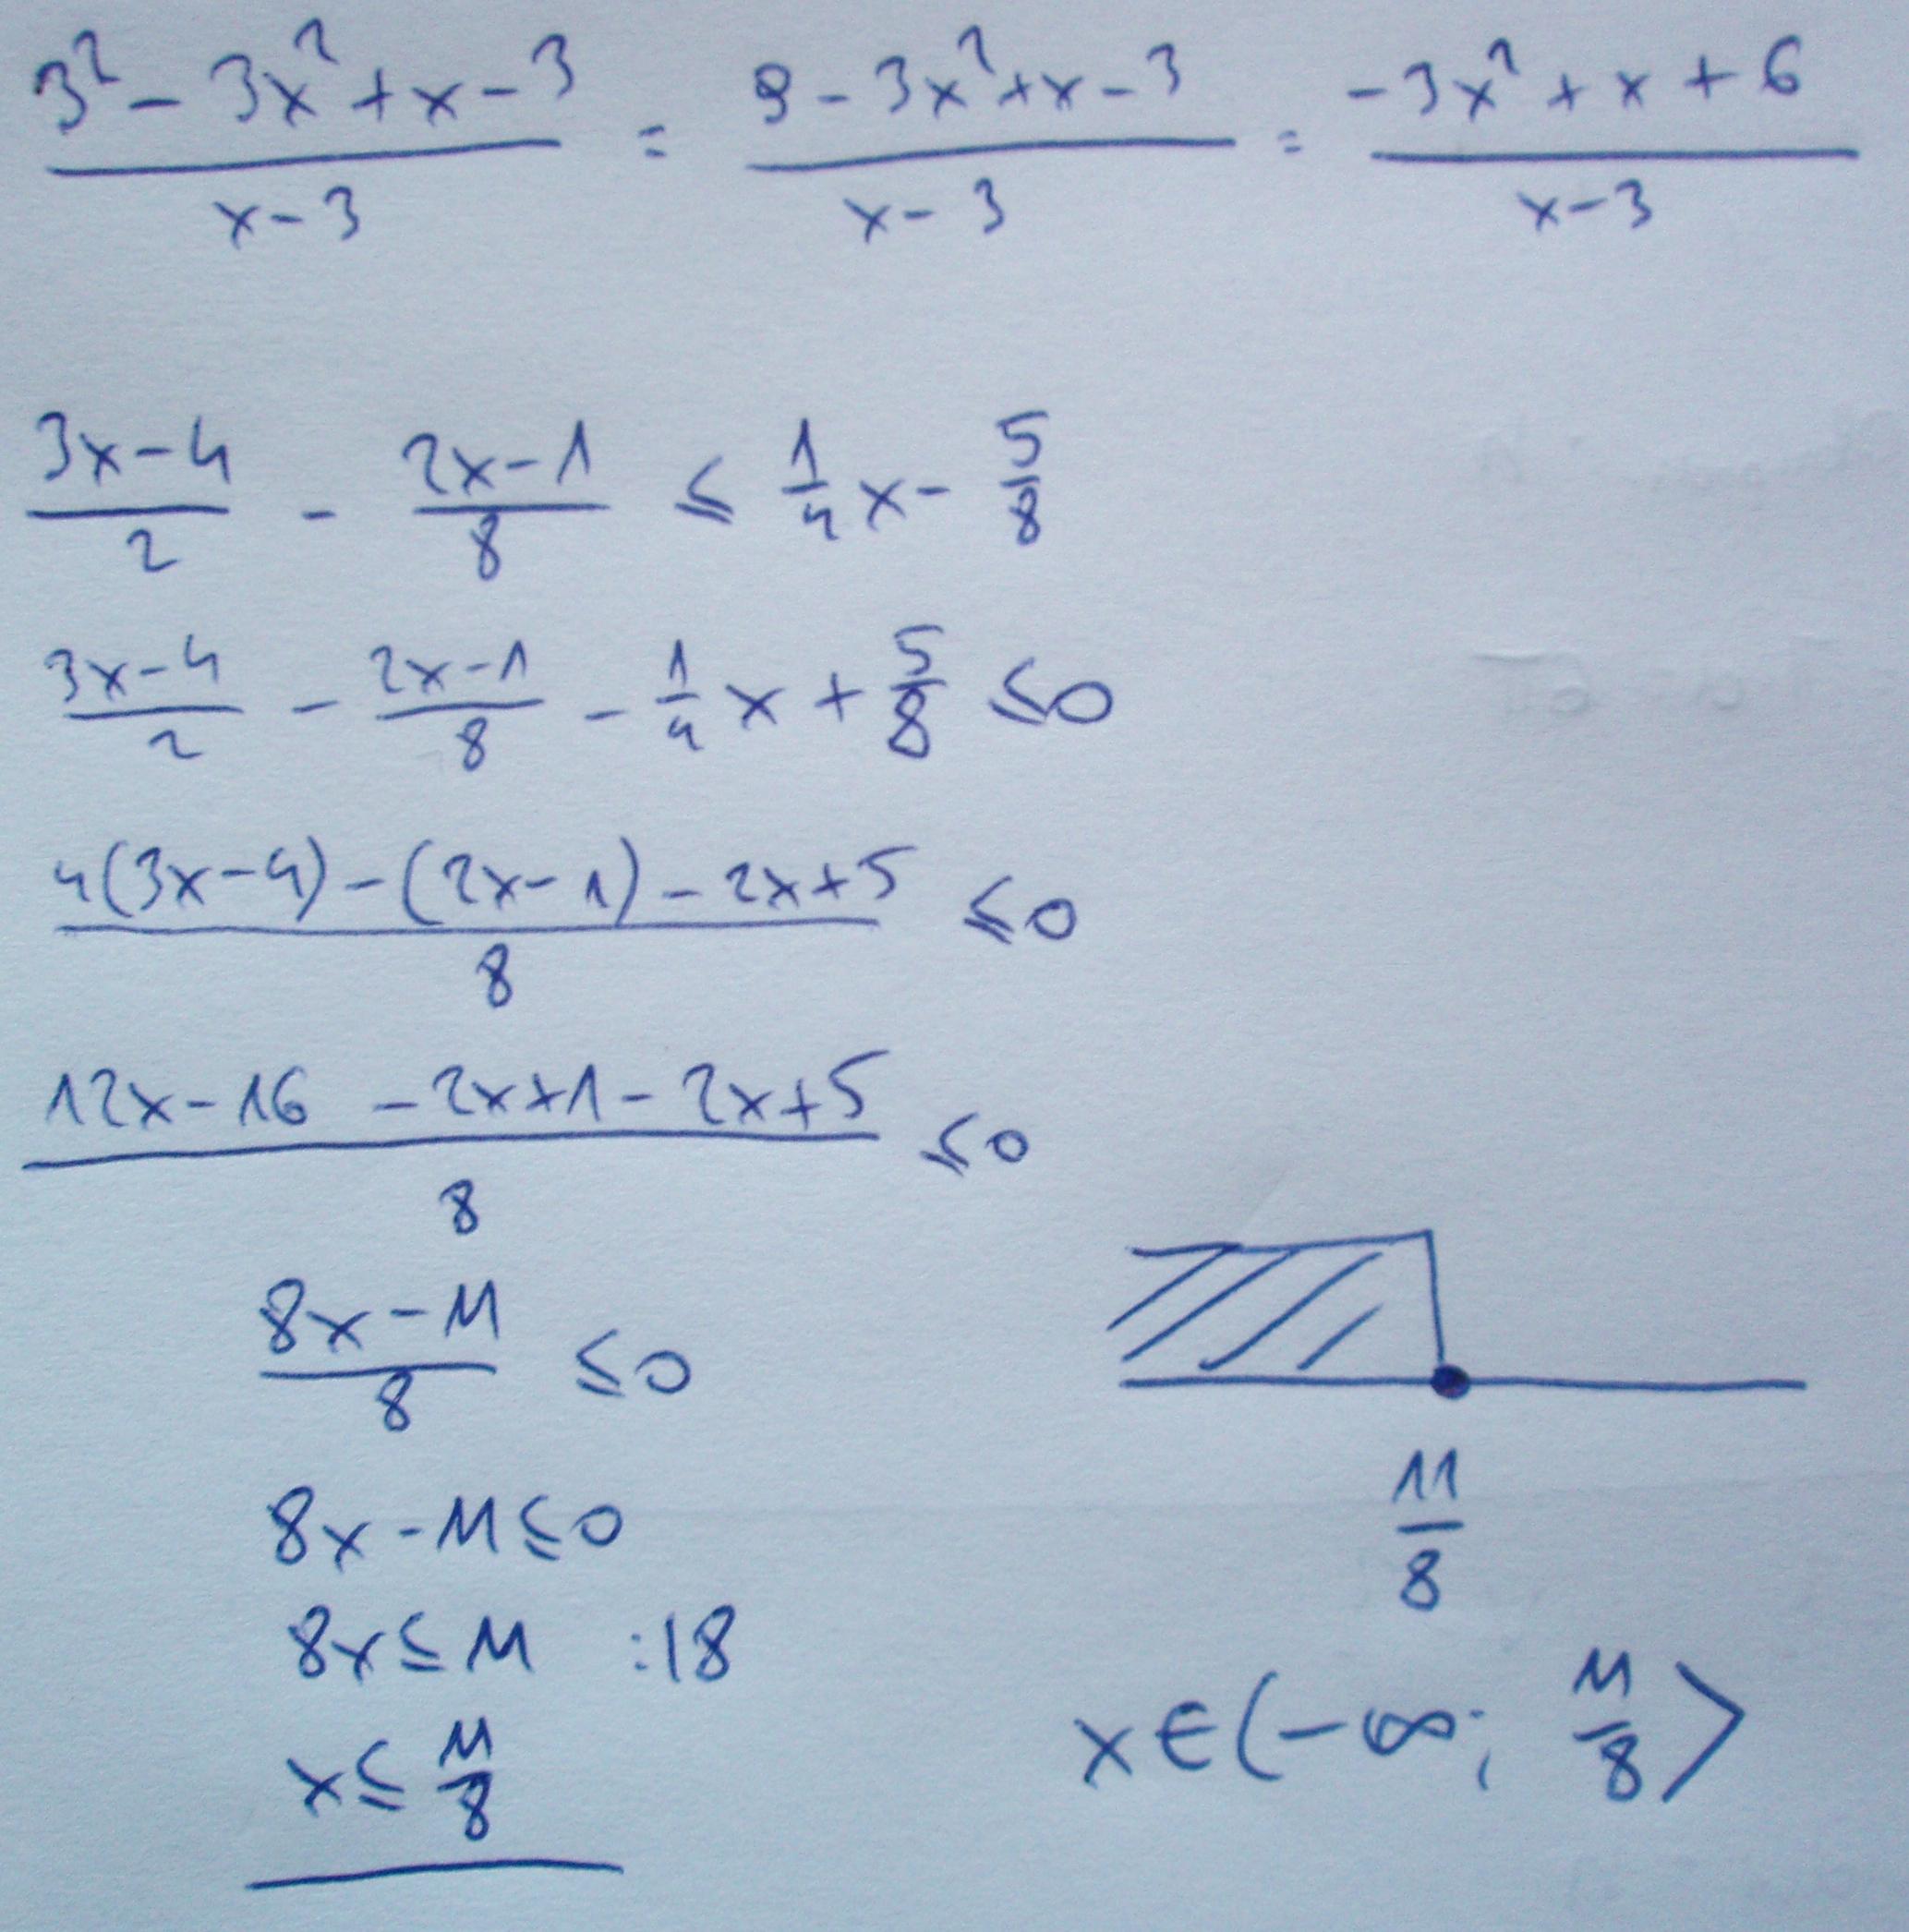 (3² - 3x² + x - 3)/(x - 3) = (9 - 3x² + x - 3)/(x - 3) = (-3x² + x + 6)/(x - 3)
(3x - 4)/2 - (2x - 1)/8 ≤ 1/4 x - 5/8
(3x - 4)/2 - (2x - 1)/8 - 1/4 x + 5/8 ≤ 0
(4(3x - 4) - (2x - 1) - 2x + 5)/8 ≤ 0
(12x - 16 - 2x + 1 - 2x + 5)/8 ≤ 0
(8x - 11)/8 ≤ 0
8x - 11 ≤ 0
8x ≤ 11 :18
x ≤ 11/8
11/8
x ∈ (-∞; 11/8>